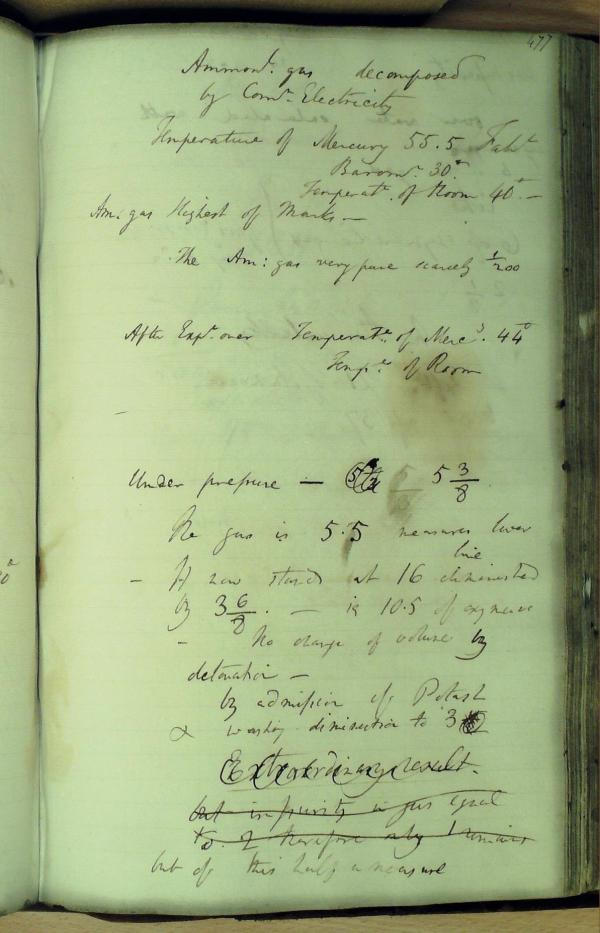 477
Ammon.l gas decomposed
by Com.n Electricity
Temperature of Mercury 55.5 Faht
Barom.r 30.
Temperat. of Room 40 -
Am: gas Highest of Marks -
The Am: gas very pure scarcely 1/200
After Exp.t over Temperat.e of Merc.y 44°
Temp.e of Room
Under pressure - 5 3/8
The gas is 5.5 measures lower
line
- It now stands at 16 diminished
by 3 6/8. - is 10.5 of
- No change of volume by
detonation -
by admission of Potash
& washing diminution to 3
Extraordinary result.
but impurity in gas equal
to 2 therefore only 1 remains
but of this half a measure